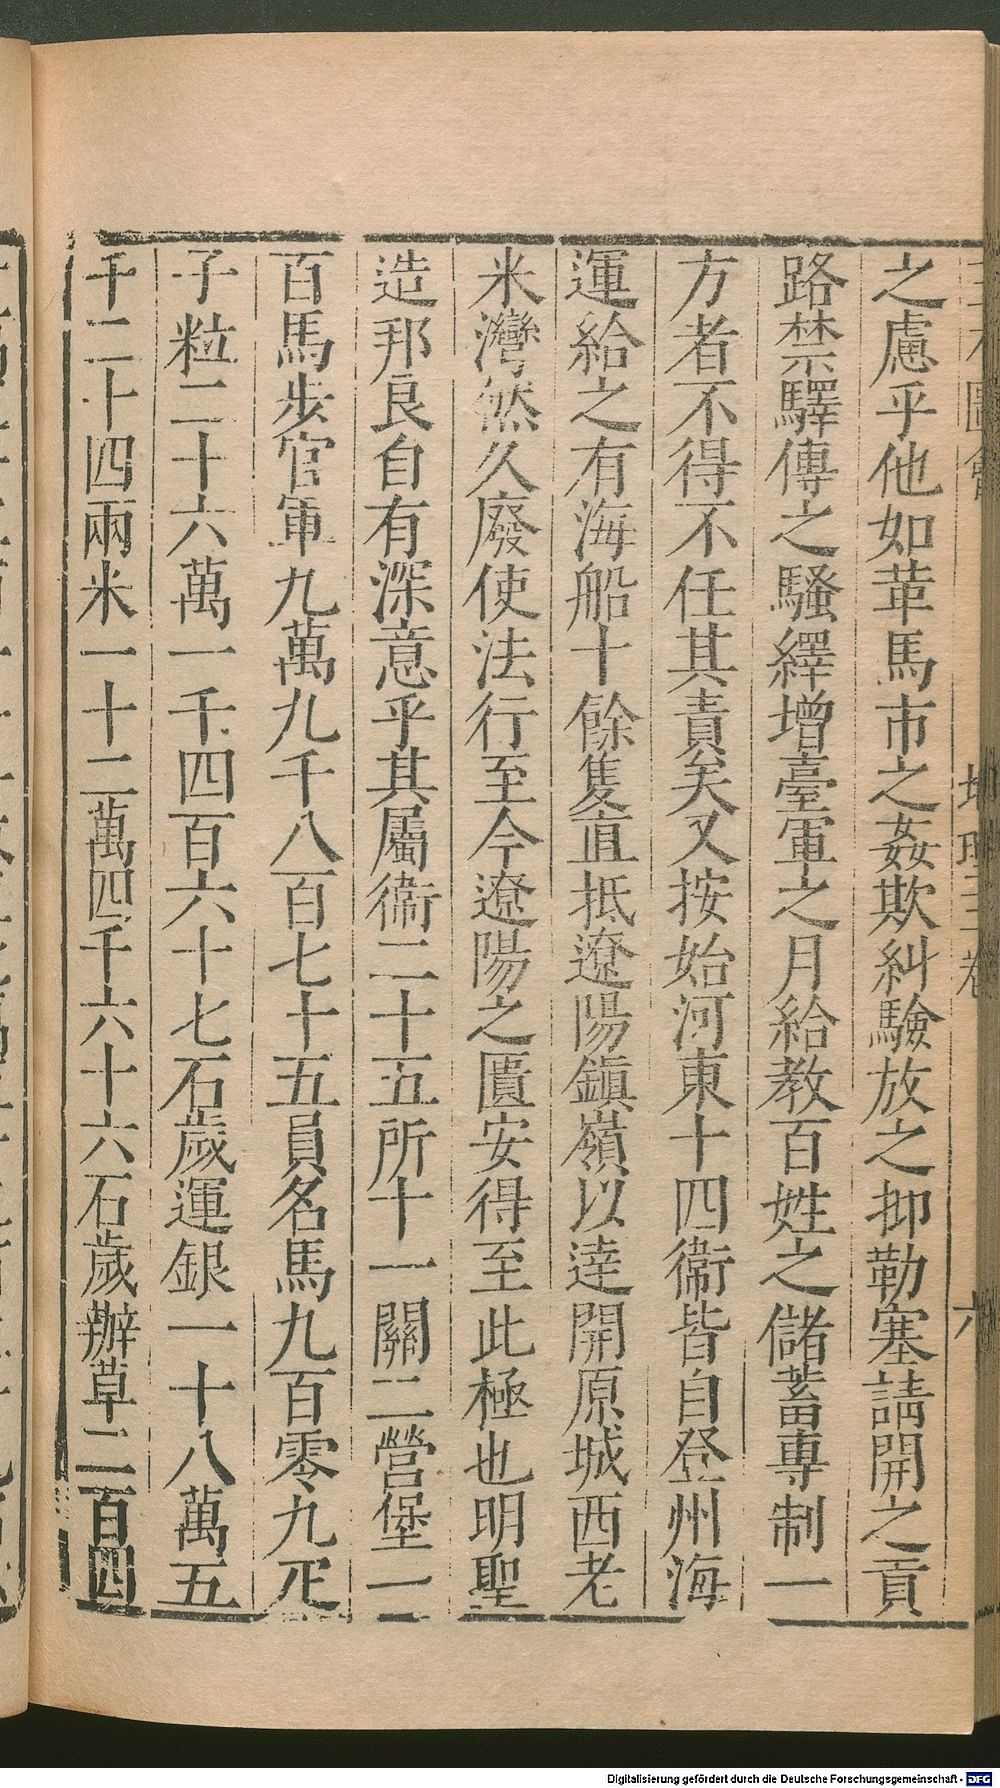 之慮乎他如革馬市之姦欺糾驗放之抑勒塞請開之貢
路禁驛傳之騷繹增臺軍之月給教百姓之儲蓄專制一
方者不得不任其責矣又按始河東十四衞皆自登州海
運給之有海船十餘隻直抵遼陽鎮嶺以達開原城西老
米灣然久廢使法行至今遼陽之匱安得至此極也明聖
造邦良自有深意乎其屬衞二十五所十一關二營堡一
百馬步官軍九萬九千八百七十五員名馬九百零九疋
子粒二十六萬一千四百六十七石歲運銀一十八萬五
千二十四兩米一十二萬四千六十六石歲辦草二百四
Digitalisierung gefördert durch die Deutsche Forschungsgemeinschaft - DFG